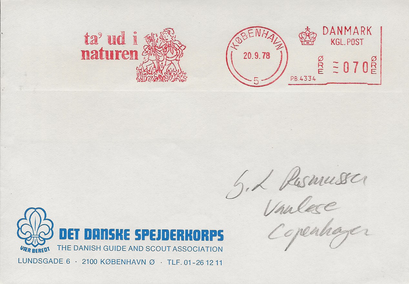 ta' ud i
naturen
KØBENHAVN
20.9.78
5
DANMARK
KGL. POST
ØRE 070 ØRE
PB 4334
Rasmussen
Vanløse
Copenhagen
VÆR BEREDT
DET DANSKE SPEJDERKORPS
THE DANISH GUIDE AND SCOUT ASSOCIATION
LUNDSGADE 6 · 2100 KØBENHAVN Ø · TLF. 01-26 12 11